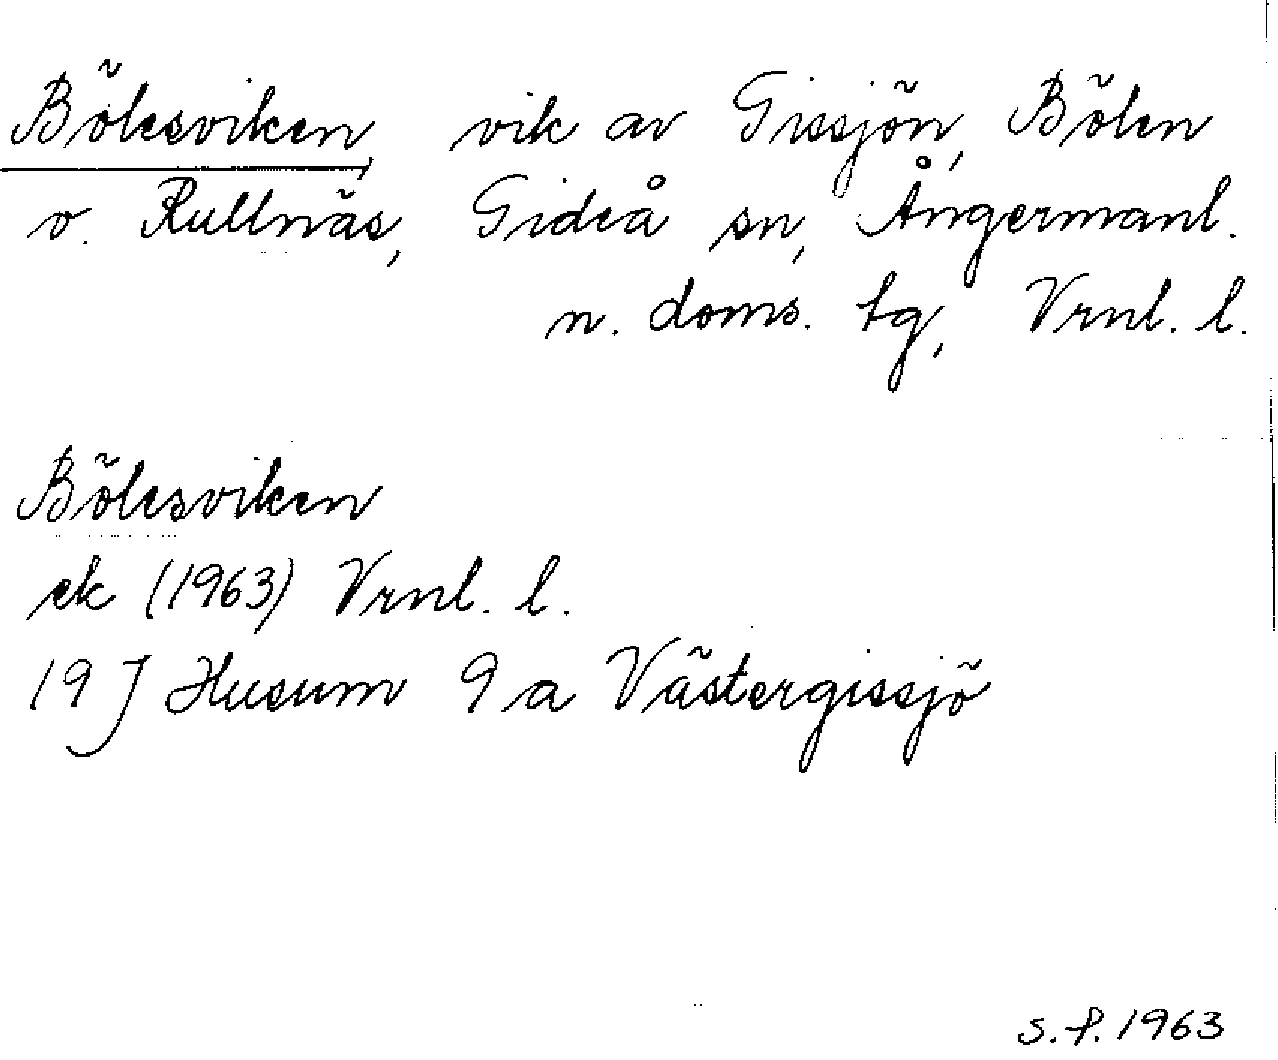 Bölesviken, vik av Gissjön, Bölen
o. Rullnäs, Gideå sn, Ångermanl.
n. doms. tg, Vrnl. l.
Bölesviken
ek (1963) Vrnl. l.
19 J Husum 9 a Västergissjö
s.f. 1963